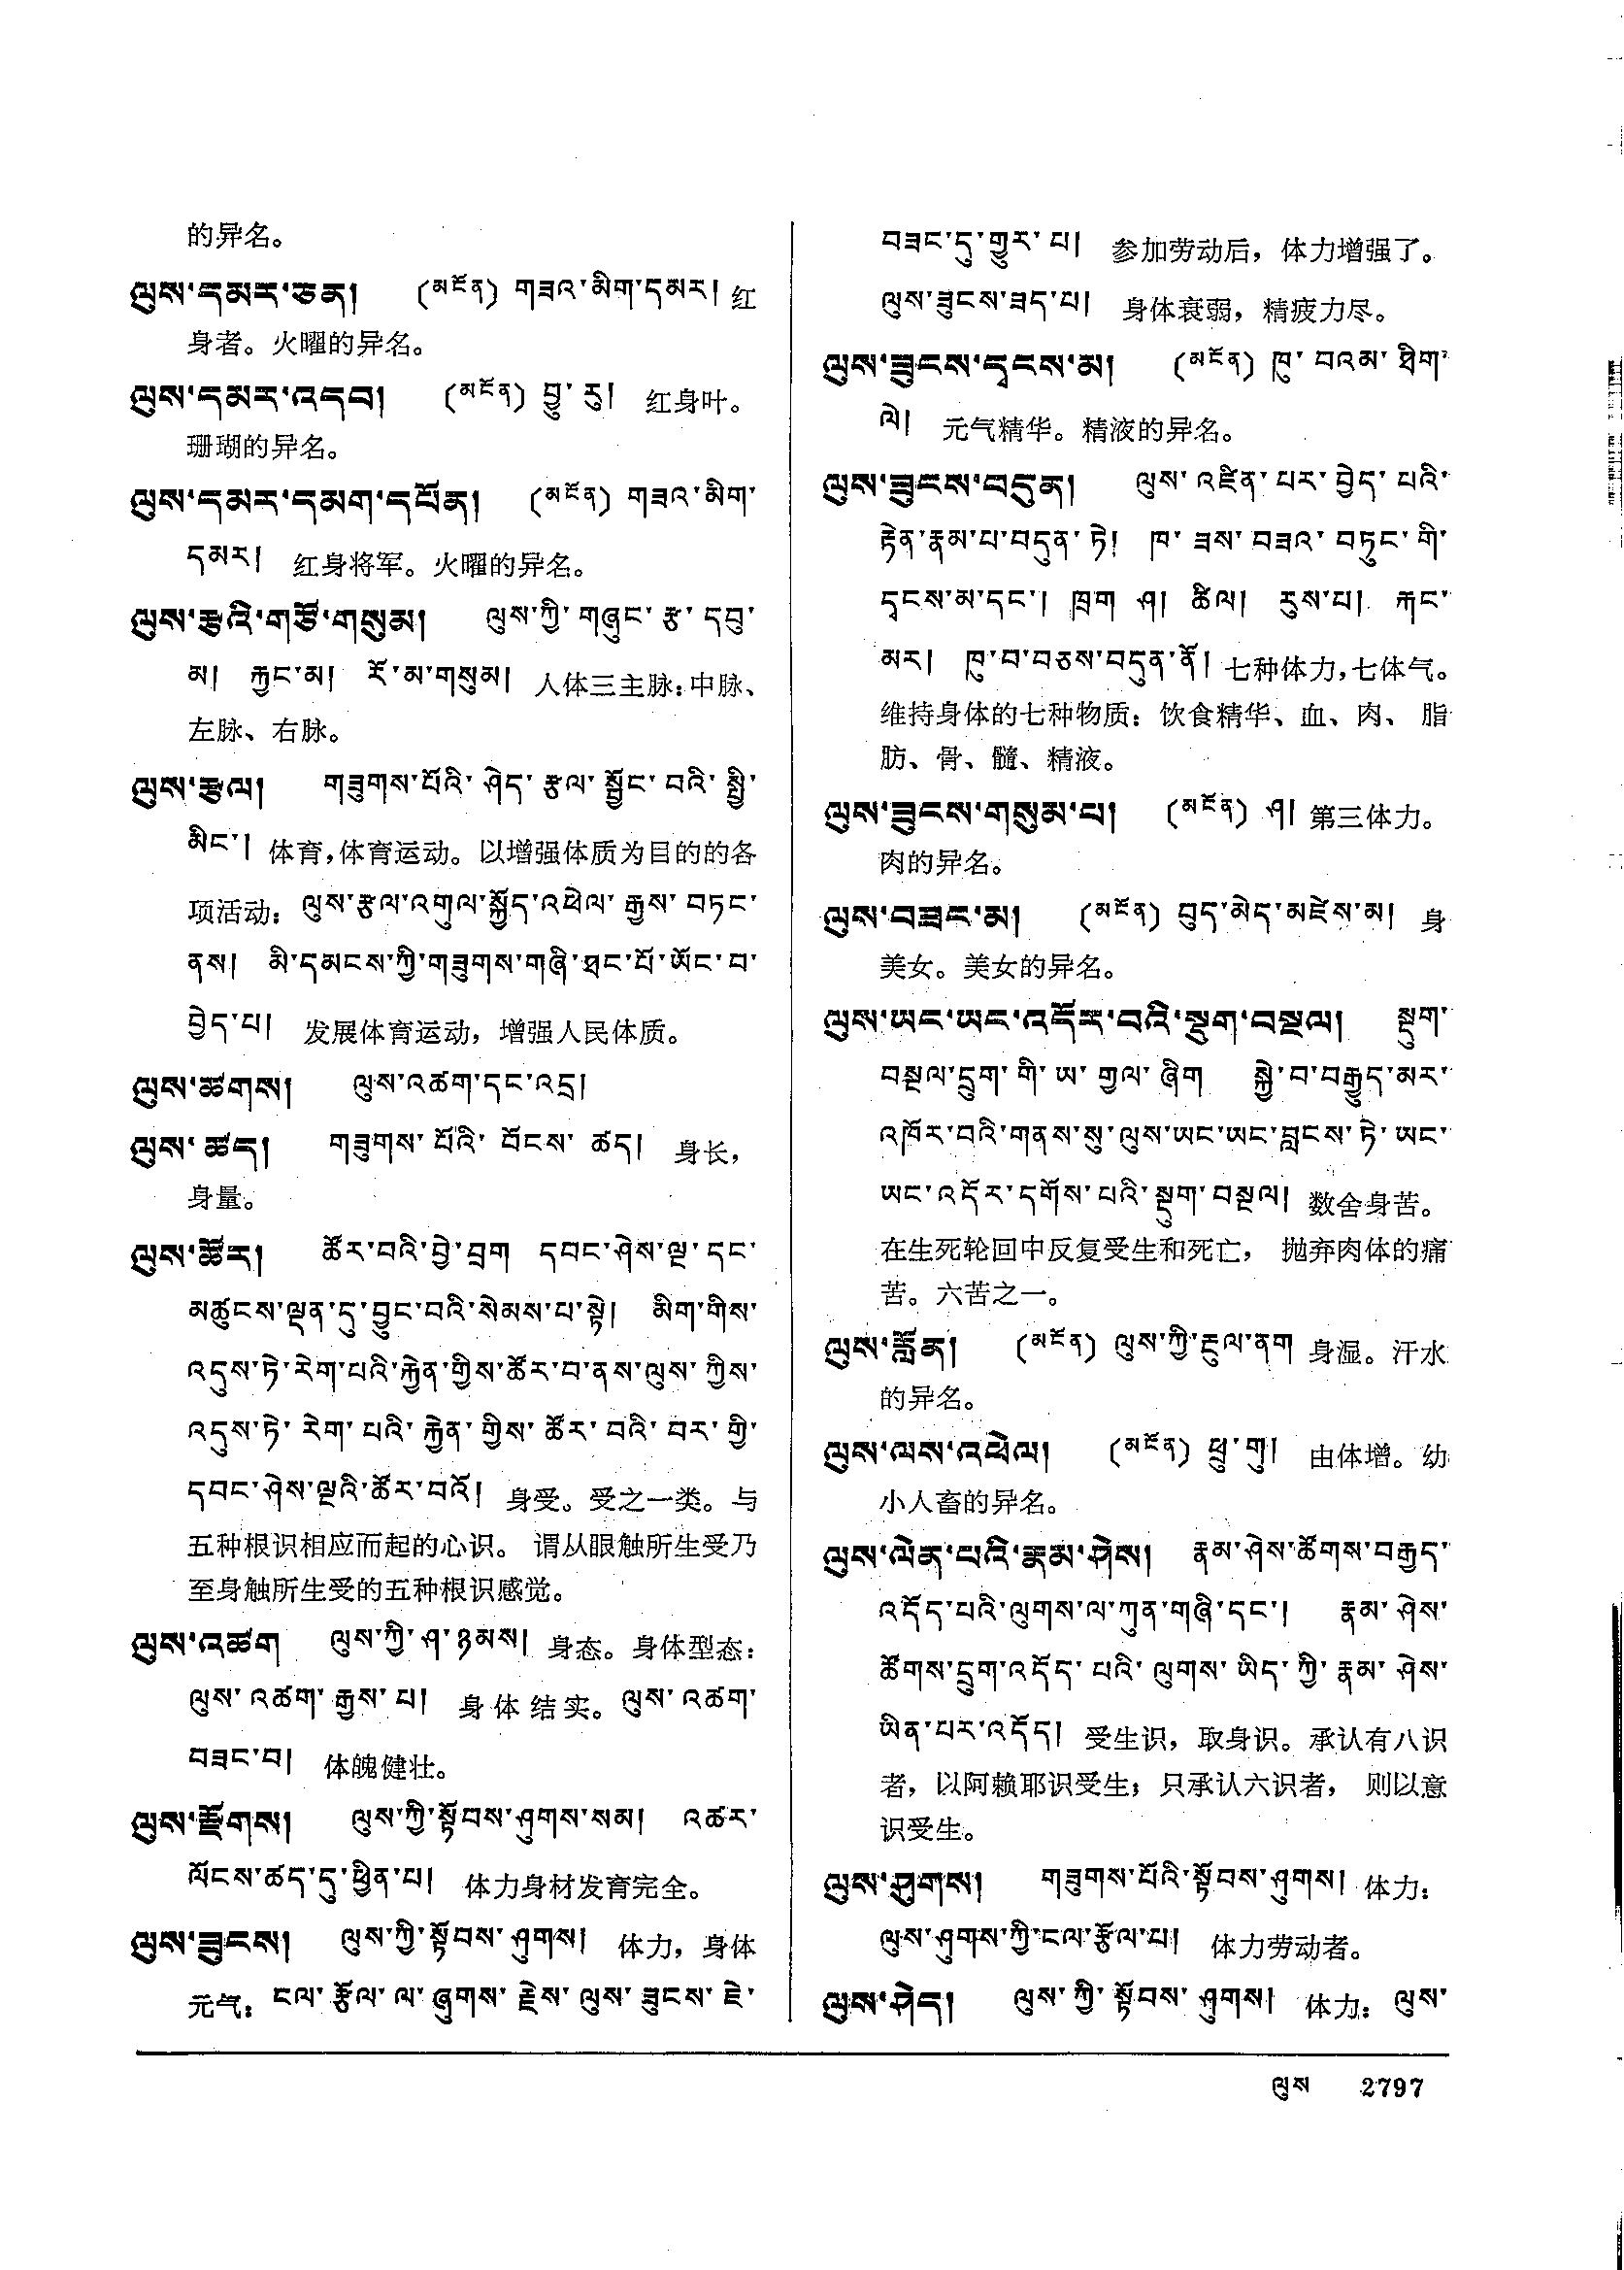 的异名。
ལུས་དམར་ཅན། (མངོན) གཟའ་མིག་དམར། 红
身者。火曜的异名。
ལུས་དམར་འདབ། (མངོན) བྱུ་རུ། 红身叶。
珊瑚的异名。
ལུས་དམར་དམག་དཔོན། (མངོན) གཟའ་མིག་
དམར། 红身将军。火曜的异名。
ལུས་རྩའི་གཙོ་གསུམ། ལུས་ཀྱི་གཞུང་རྩ་དབུ་
མ། རྐྱང་མ། རོ་མ་གསུམ། 人体三主脉：中脉、
左脉、右脉。
ལུས་རྩལ། གཟུགས་པོའི་ཤེད་རྩལ་སྦྱོང་བའི་སྤྱི་
མིང་། 体育，体育运动。以增强体质为目的的各
项活动：ལུས་རྩལ་འགུལ་སྐྱོད་འཕེལ་རྒྱས་བཏང་
ནས། མི་དམངས་ཀྱི་གཟུགས་གཞི་ཐང་པོ་ཡོང་བ་
བྱེད་པ། 发展体育运动，增强人民体质。
ལུས་ཚགས། ལུས་འཚག་དང་འདྲ།
ལུས་ཚད། གཟུགས་པོའི་བོངས་ཚད། 身长，
身量。
ལུས་ཚོར། ཚོར་བའི་བྱེ་བྲག དབང་ཤེས་ལྔ་དང་
མཚུངས་ལྡན་དུ་བྱུང་བའི་སེམས་པ་སྟེ། མིག་གིས་
འདུས་ཏེ་རེག་པའི་རྐྱེན་གྱིས་ཚོར་བ་ནས་ལུས་ཀྱིས་
འདུས་ཏེ་རེག་པའི་རྐྱེན་གྱིས་ཚོར་བའི་བར་གྱི་
དབང་ཤེས་ལྔའི་ཚོར་བའོ། 身受。受之一类。与
五种根识相应而起的心识。谓从眼触所生受乃
至身触所生受的五种根识感觉。
ལུས་འཚག ལུས་ཀྱི་ཤ་ཉམས། 身态。身体型态：
ལུས་འཚག་རྒྱས་པ། 身体结实。ལུས་འཚག་
བཟང་བ། 体魄健壮。
ལུས་རྫོགས། ལུས་ཀྱི་སྟོབས་ཤུགས་སམ། འཚར་
ལོངས་ཚད་དུ་ཕྱིན་པ། 体力身材发育完全。
ལུས་ཟུངས། ལུས་ཀྱི་སྟོབས་ཤུགས། 体力，身体
元气：ངལ་རྩོལ་ལ་ཞུགས་རྗེས་ལུས་ཟུངས་ཇེ་
བཟང་དུ་གྱུར་པ། 参加劳动后，体力增强了。
ལུས་ཟུངས་ཟད་པ། 身体衰弱，精疲力尽。
ལུས་ཟུངས་དྭངས་མ། (མངོན) ཁུ་བའམ་ཐིག་
ལེ། 元气精华。精液的异名。
ལུས་ཟུངས་བདུན། ལུས་འཛིན་པར་བྱེད་པའི་
རྟེན་རྣམ་པ་བདུན་ཏེ། ཁ་ཟས་བཟའ་བཏུང་གི་
དྭངས་མ་དང་། ཁྲག ཤ། ཚིལ། རུས་པ། རྐང་
མར། ཁུ་བ་བཅས་བདུན་ནོ། 七种体力，七体气。
维持身体的七种物质：饮食精华、血、肉、脂
肪、骨、髓、精液。
ལུས་ཟུངས་གསུམ་པ། (མངོན) ཤ། 第三体力。
肉的异名。
ལུས་བཟང་མ། (མངོན) བུད་མེད་མཛེས་མ། 身
美女。美女的异名。
ལུས་ཡང་ཡང་འདོར་བའི་སྡུག་བསྔལ། སྡུག་
བསྔལ་དྲུག་གི་ཡ་གྱལ་ཞིག སྐྱེ་བ་བརྒྱུད་མར་
འཁོར་བའི་གནས་སུ་ལུས་ཡང་ཡང་བླངས་ཏེ་ཡང་
ཡང་འདོར་དགོས་པའི་སྡུག་བསྔལ། 数舍身苦。
在生死轮回中反复受生和死亡，抛弃肉体的痛
苦。六苦之一。
ལུས་རློན། (མངོན) ལུས་ཀྱི་རྔུལ་ནག 身湿。汗水
的异名。
ལུས་ལས་འཕེལ། (མངོན) ཕྲུ་གུ། 由体增。幼
小人畜的异名。
ལུས་ལེན་པའི་རྣམ་ཤེས། རྣམ་ཤེས་ཚོགས་བརྒྱད་
འདོད་པའི་ལུགས་ལ་ཀུན་གཞི་དང་། རྣམ་ཤེས་
ཚོགས་དྲུག་འདོད་པའི་ལུགས་ཡིད་ཀྱི་རྣམ་ཤེས་
ཡིན་པར་འདོད། 受生识，取身识。承认有八识
者，以阿赖耶识受生；只承认六识者，则以意
识受生。
ལུས་ཤུགས། གཟུགས་པོའི་སྟོབས་ཤུགས། 体力：
ལུས་ཤུགས་ཀྱི་ངལ་རྩོལ་པ། 体力劳动者。
ལུས་ཤེད། ལུས་ཀྱི་སྟོབས་ཤུགས། 体力：ལུས་
ལུས 2797